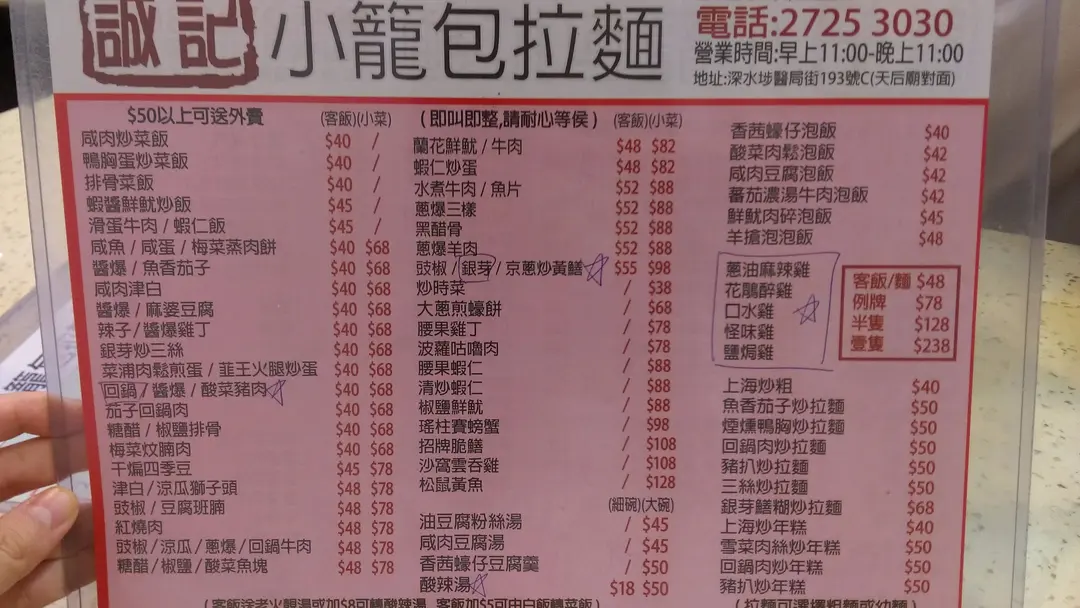 誠記 小籠包拉麵
電話:2725 3030
營業時間:早上11:00-晚上11:00
地址:深水埗醫局街193號C(天后廟對面)
$50以上可送外賣 (客飯)(小菜)
咸肉炒菜飯 $40 /
鴨胸蛋炒菜飯 $40 /
排骨菜飯 $40 /
蝦醬鮮魷炒飯 $45 /
滑蛋牛肉 / 蝦仁飯 $45 /
咸魚 / 咸蛋 / 梅菜蒸肉餅 $40 $68
醬爆 / 魚香茄子 $40 $68
咸肉津白 $40 $68
醬爆 / 麻婆豆腐 $40 $68
辣子 / 醬爆雞丁 $40 $68
銀芽炒三絲 $40 $68
菜浦肉鬆煎蛋 / 韮王火腿炒蛋 $40 $68
回鍋 / 醬爆 / 酸菜豬肉 $40 $68
茄子回鍋肉 $40 $68
糖醋 / 椒鹽排骨 $40 $68
梅菜炆腩肉 $40 $68
干煸四季豆 $45 $78
津白 / 涼瓜獅子頭 $48 $78
豉椒 / 豆腐班腩 $48 $78
紅燒肉 $48 $78
豉椒 / 涼瓜 / 蔥爆 / 回鍋牛肉 $48 $78
糖醋 / 椒鹽 / 酸菜魚塊 $48 $78
(客飯送老火靚湯或加$8可轉酸辣湯, 客飯加$5可由白飯轉菜飯)
(即叫即整,請耐心等侯) (客飯)(小菜)
蘭花鮮魷 / 牛肉 $48 $82
蝦仁炒蛋 $48 $82
水煮牛肉 / 魚片 $52 $88
蔥爆三樣 $52 $88
黑醋骨 $52 $88
蔥爆羊肉 $52 $88
豉椒 / 銀芽 / 京蔥炒黃鱔 $55 $98
炒時菜 / $38
大蔥煎蠔餅 / $68
腰果雞丁 / $78
波蘿咕嚕肉 / $78
腰果蝦仁 / $88
清炒蝦仁 / $88
椒鹽鮮魷 / $88
瑤柱賽螃蟹 / $98
招牌脆鱔 / $108
沙窩雲吞雞 / $108
松鼠黃魚 / $128
(細碗)(大碗)
油豆腐粉絲湯 / $45
咸肉豆腐湯 / $45
香茜蠔仔豆腐羹 / $50
酸辣湯 $18 $50
香茜蠔仔泡飯 $40
酸菜肉鬆泡飯 $42
咸肉豆腐泡飯 $42
蕃茄濃湯牛肉泡飯 $42
鮮魷肉碎泡飯 $45
羊搶泡泡飯 $48
蔥油麻辣雞
花鵰醉雞
口水雞
怪味雞
鹽焗雞
客飯/麵 $48
例牌 $78
半隻 $128
壹隻 $238
上海炒粗 $40
魚香茄子炒拉麵 $50
煙燻鴨胸炒拉麵 $50
回鍋肉炒拉麵 $50
豬扒炒拉麵 $50
三絲炒拉麵 $50
銀芽鱔糊炒拉麵 $68
上海炒年糕 $40
雪菜肉絲炒年糕 $50
回鍋肉炒年糕 $50
豬扒炒年糕 $50
(拉麵可選擇粗麵或幼麵)